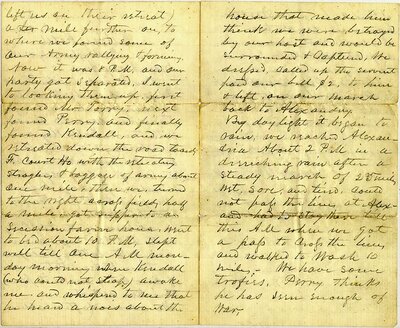 left us on their retreat)
a ½ mile further on, to
where we found some of
our Army rallying & forming
Now it was 6 P.M. and our
party got separated. I went
to looking them up, first
found Mr Perry, next
found Perry, and finally
found Kendall, and we
retreated down the road towards
F. Court Ho. with the retreating
Straglers & baggage of army about
One mile, then we turned
to the right, across fields, half
a mile & got supper in an
secession farm house. Went
to bed about 10 P.M, slept
well till One A.M. mon-
day morning when Kendall
(who could not sleep) awoke
me and whispered to me that
he heard a noise about the
house that made him
think we were betrayed
by our host and would be
surrounded & captured. We
dressed, called up the servant
paid our bill $2, to him
& left on our march
back to Alexandria.
By day light it began to
rain, we reached Alexan
dria About 2 P.M in a
drenching rain after a
steady march of 28 miles
Wet, Sore, and tired. Could
not pass the line at Alex-
and had to stay there till
this A.M. when we got
a pass to cross the lines,
and walked to Wash 10
miles. We have some
trofies, Perry thinks
he has seen enough of
War.